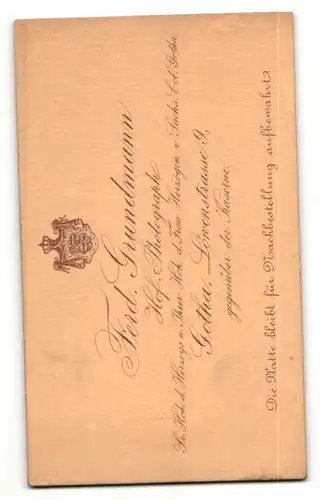 Ferd. Grundmann
Hof-Photograph
Sr. Hoh. d. Herzogs u. Ihrer Hoh. d. Frau Herzogin v. Sachs. Cob. Gotha
Gotha, Löwenstrasse 9,
gegenüber der Kaserne.
Die Platte bleibt für Nachbestellung aufbewahrt.